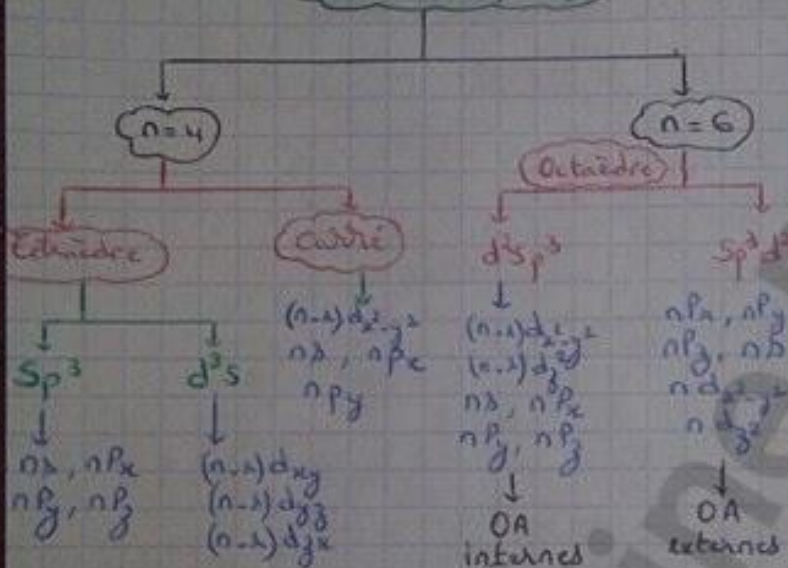 n=4
n=6
Octaèdre
Tétraèdre
Carré
d²sp³
sp³d²
(n-1)dx²-y²
ns, npx
npy
(n-1)dx²-y²
(n-1)dz²
ns, nPx
nPy, nPz
nPx, nPy
nPz, ns
n dx²-y²
n dz²
Sp³
d³s
ns, nPx
nPy, nPz
(n-1)dxy
(n-1)dyz
(n-1)dzx
OA
internes
OA
externes